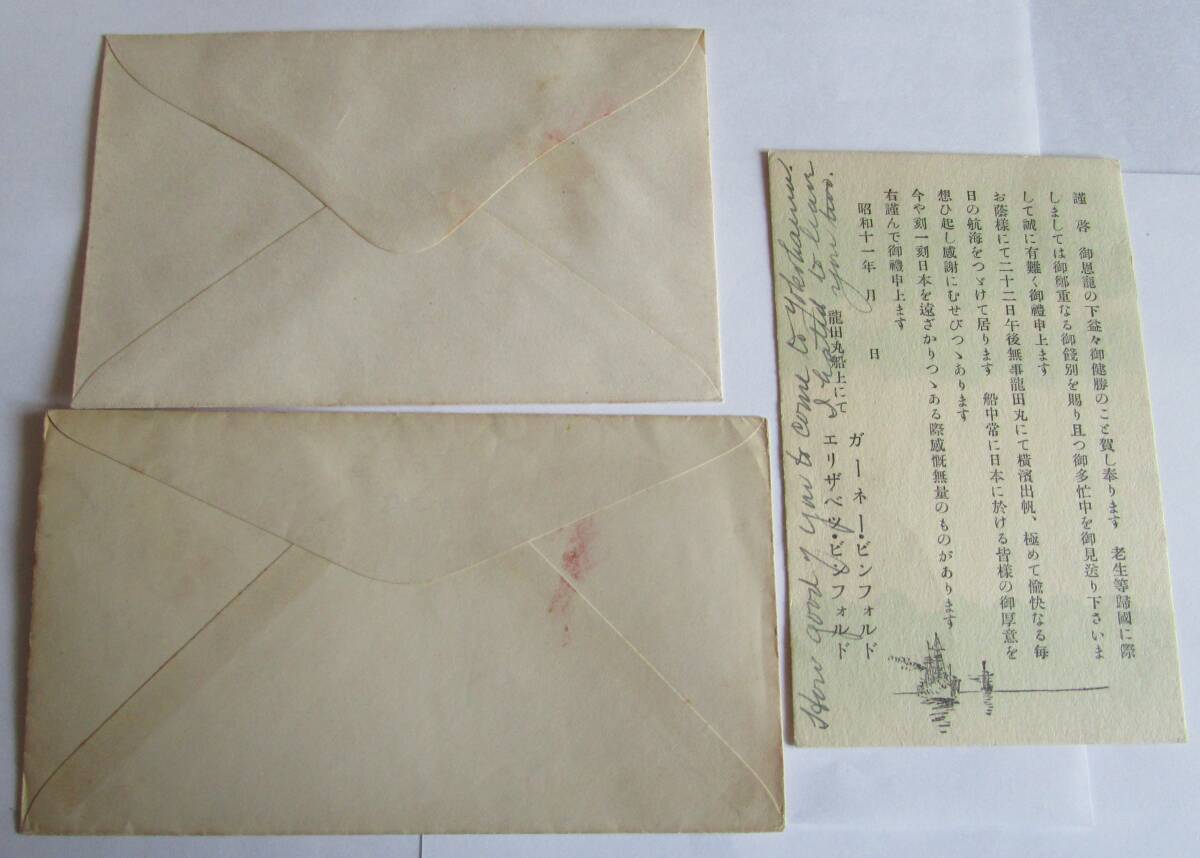 謹啓 御恩寵の下益々御健勝のこと賀し奉ります 老生等歸國に際
しましては御鄭重なる御餞別を賜り且つ御多忙中を御見送り下さいま
して誠に有難く御禮申上ます
お蔭樣にて二十二日午後無事龍田丸にて横濱出帆、極めて愉快なる毎
日の航海をつゞけて居ります 船中常に日本に於ける皆樣の御厚意を
想ひ起し感謝にむせびつゝあります
今や刻一刻日本を遠ざかりつゝある際感慨無量のものがあります
右謹んで御禮申上ます
昭和十一年 月 日
龍田丸船上にて
ガーネー・ビンフォルド
エリザベツ・ビンフォルド
How good of you to come to Yokohama.
I hated to leave
you too.